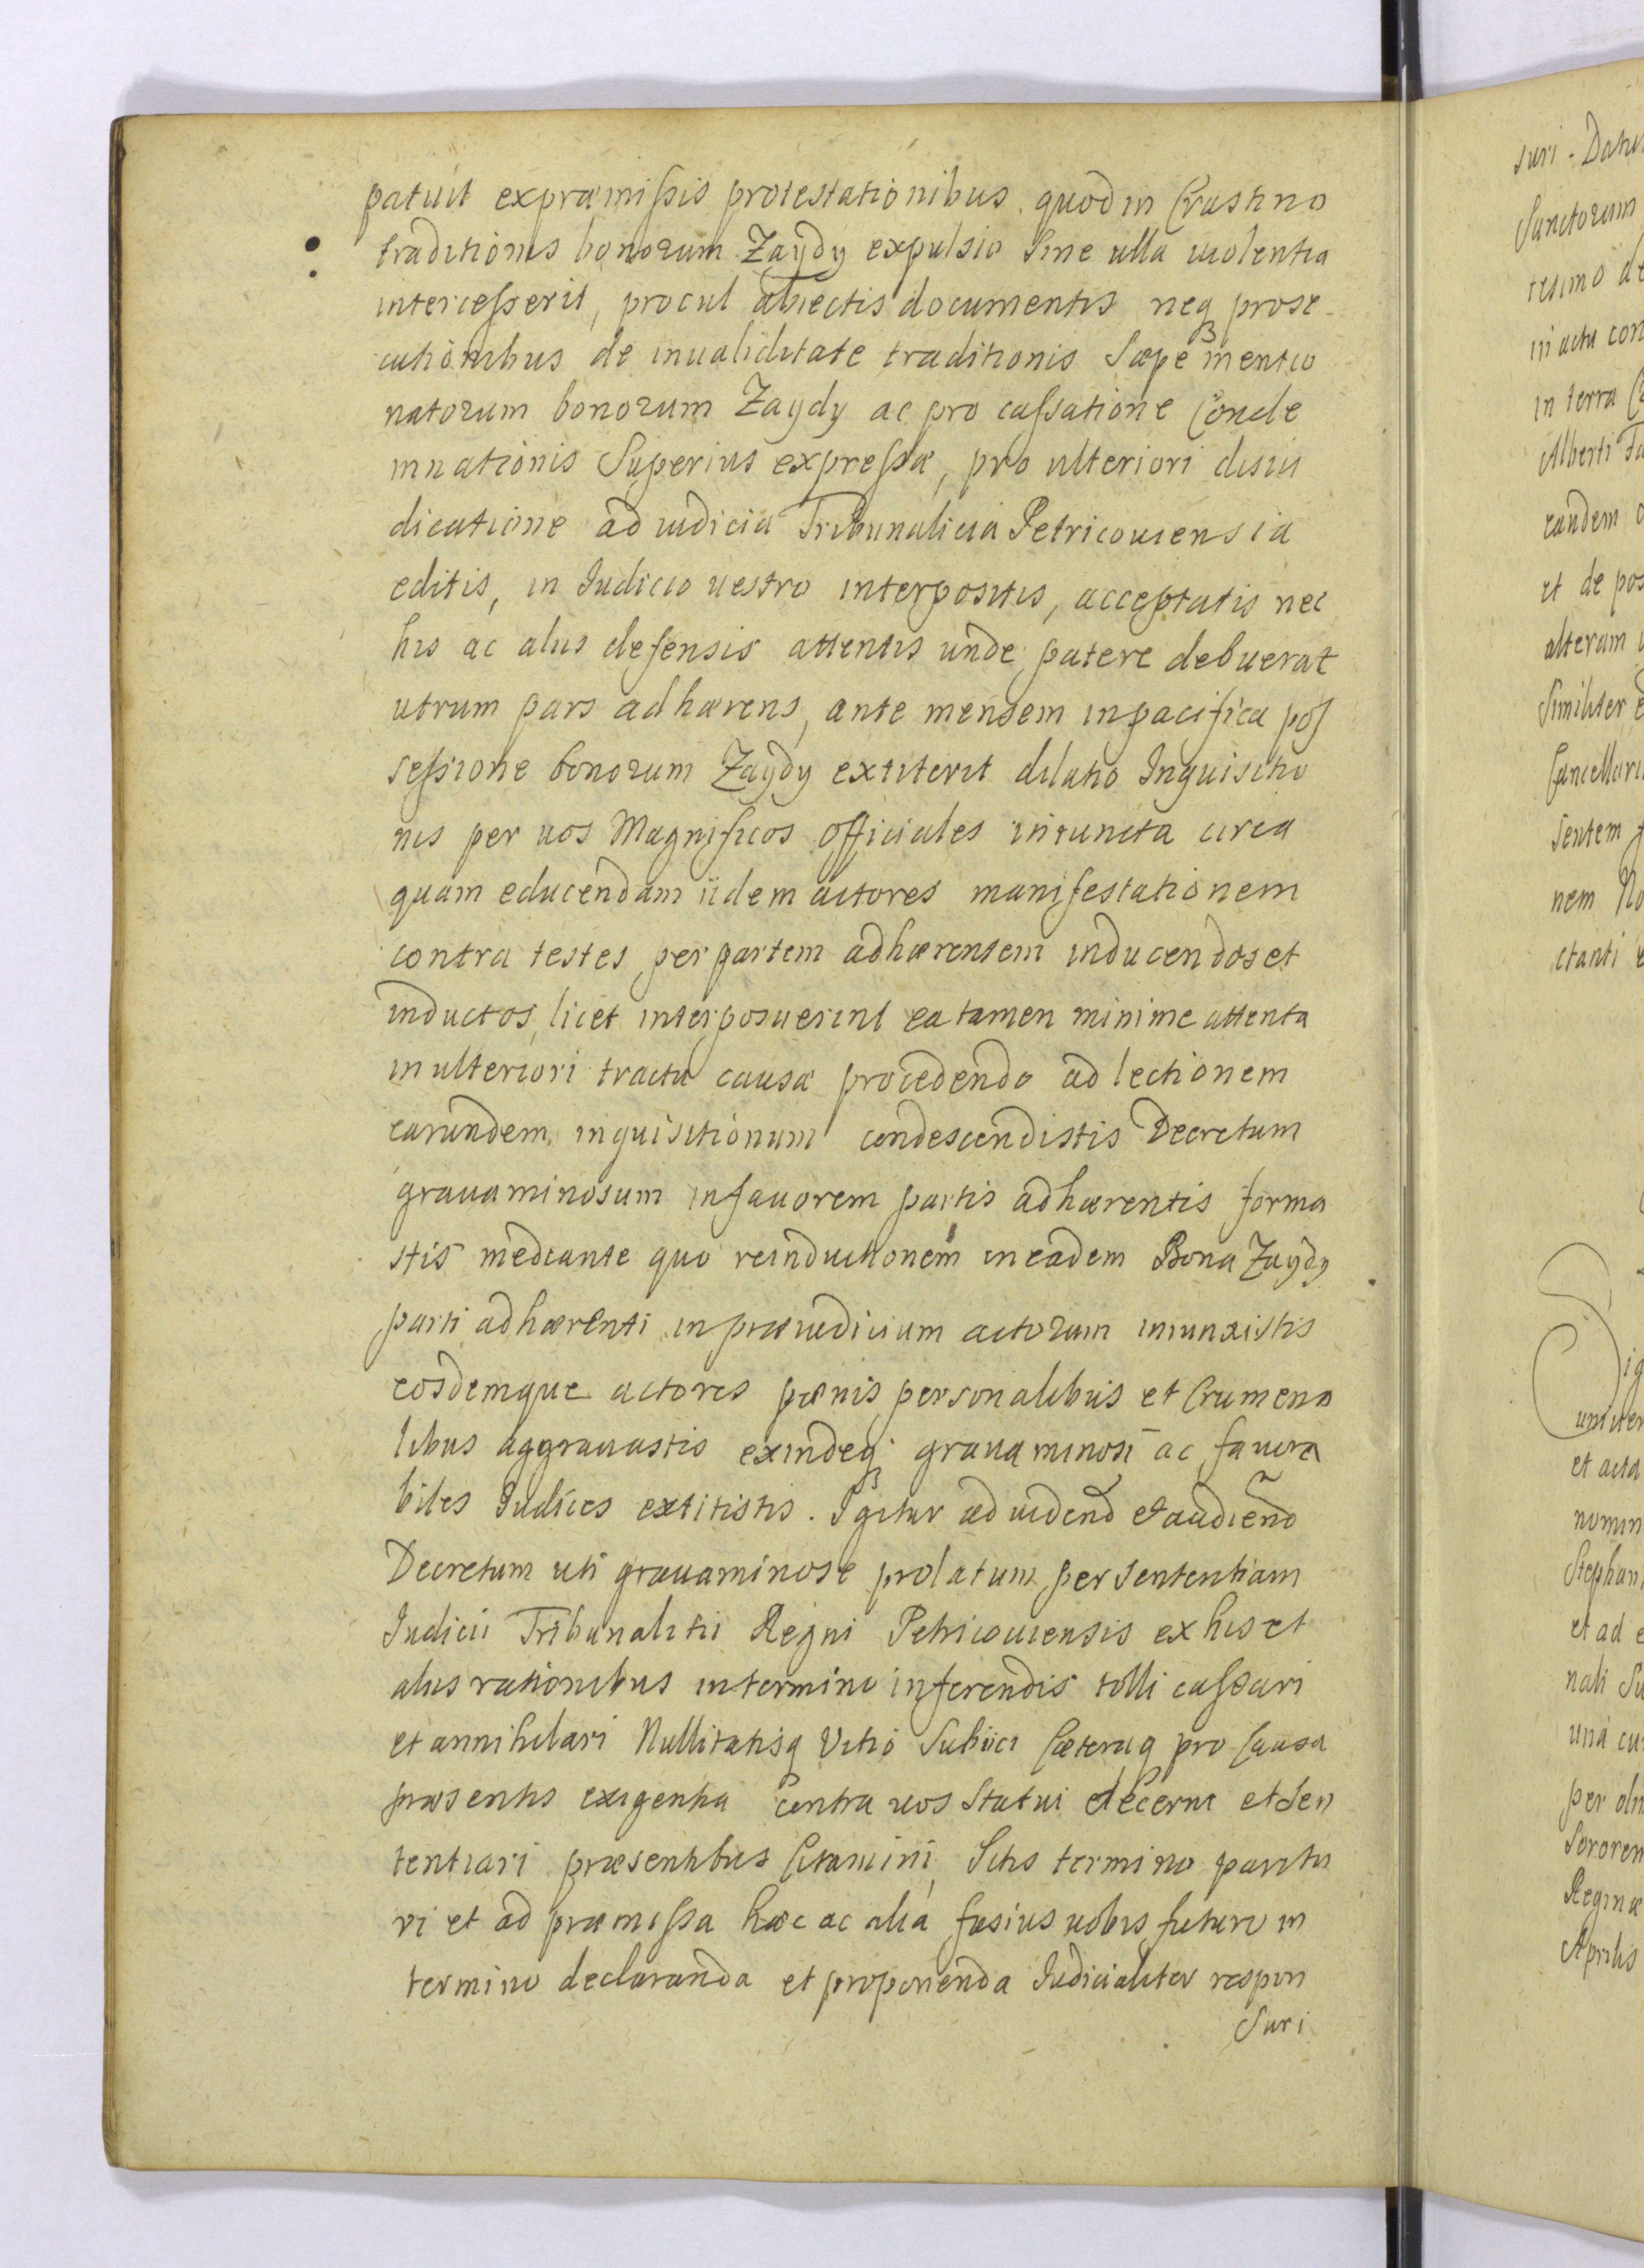 patuit expræmissis protestationibus quod in Crastino
traditionis bonorum Zaydy expulsio sine ulla uiolentia
intercesserit, procul abiectis documentis neq₃ prose
cutionibus de inualiditate traditionis Sæpe mentio
natorum bonorum Zaydy ac pro cassatione Conde
mnationis Superius expressæ, pro ulteriori disiu
dicatione ad iudicia Tribunalicia Petricouiensia
editis, in Iudicio uestro interpositis, acceptatis nec
his ac alijs defensis attentis unde patere debuerat
utrum pars adhærens, ante mensem inpacifica pos
sessione bonorum Zaydy extiterit dilatio Inquisitio
nis per uos Magnificos officiales iniuncta circa
quam educendam iidem actores manifestationem
contra testes per partem adhærentem inducendos et
inductos, licet interposuerint ea tamen minime attenta
in ulteriori tractu causæ procedendo ad lectionem
earundem inquisitionum condescendistis Decretum
grauaminosum infauorem partis adhærentis forma
stis mediante quo reinductionem ineadem Bona Zaydy
parti adhærenti inpræiudicium actorum iniunxistis
eosdemque actores pænis personalibus et Crumena
libus aggrauastis exindeq₃ grauaminosi ac fauora
biles Iudices extitistis. Igitur ad uidend et audiend
Decretum uti grauaminose prolatum per sententiam
Iudicii Tribunalitii Regni Petricouiensis ex his et
alijs rationibus in termino inferendis tolli cassari
et annihilari Nullitatisq Vitio Subiici Cæteraq pro Causa
præsentis exigentia contra uos Statui decerni et sen
tentiari præsentibus Citamini, Sitis termino paritu
ri et ad præmissa hæc ac alia fusius uobis futuro in
termino declaranda et proponenda Iudicialiter respon
Suri
suri. Datu
Sanctorum
tesimo de
in actu con
in terra
Alberti
eandem
et de pos
alteram
Similiter
Cancellari
sentem
nem No
ctanti
Dig
uniuer
et acta
nomin
Stephan
et ad e
nali Su
una cu
per olm
Sororem
Reginæ
Aprilis